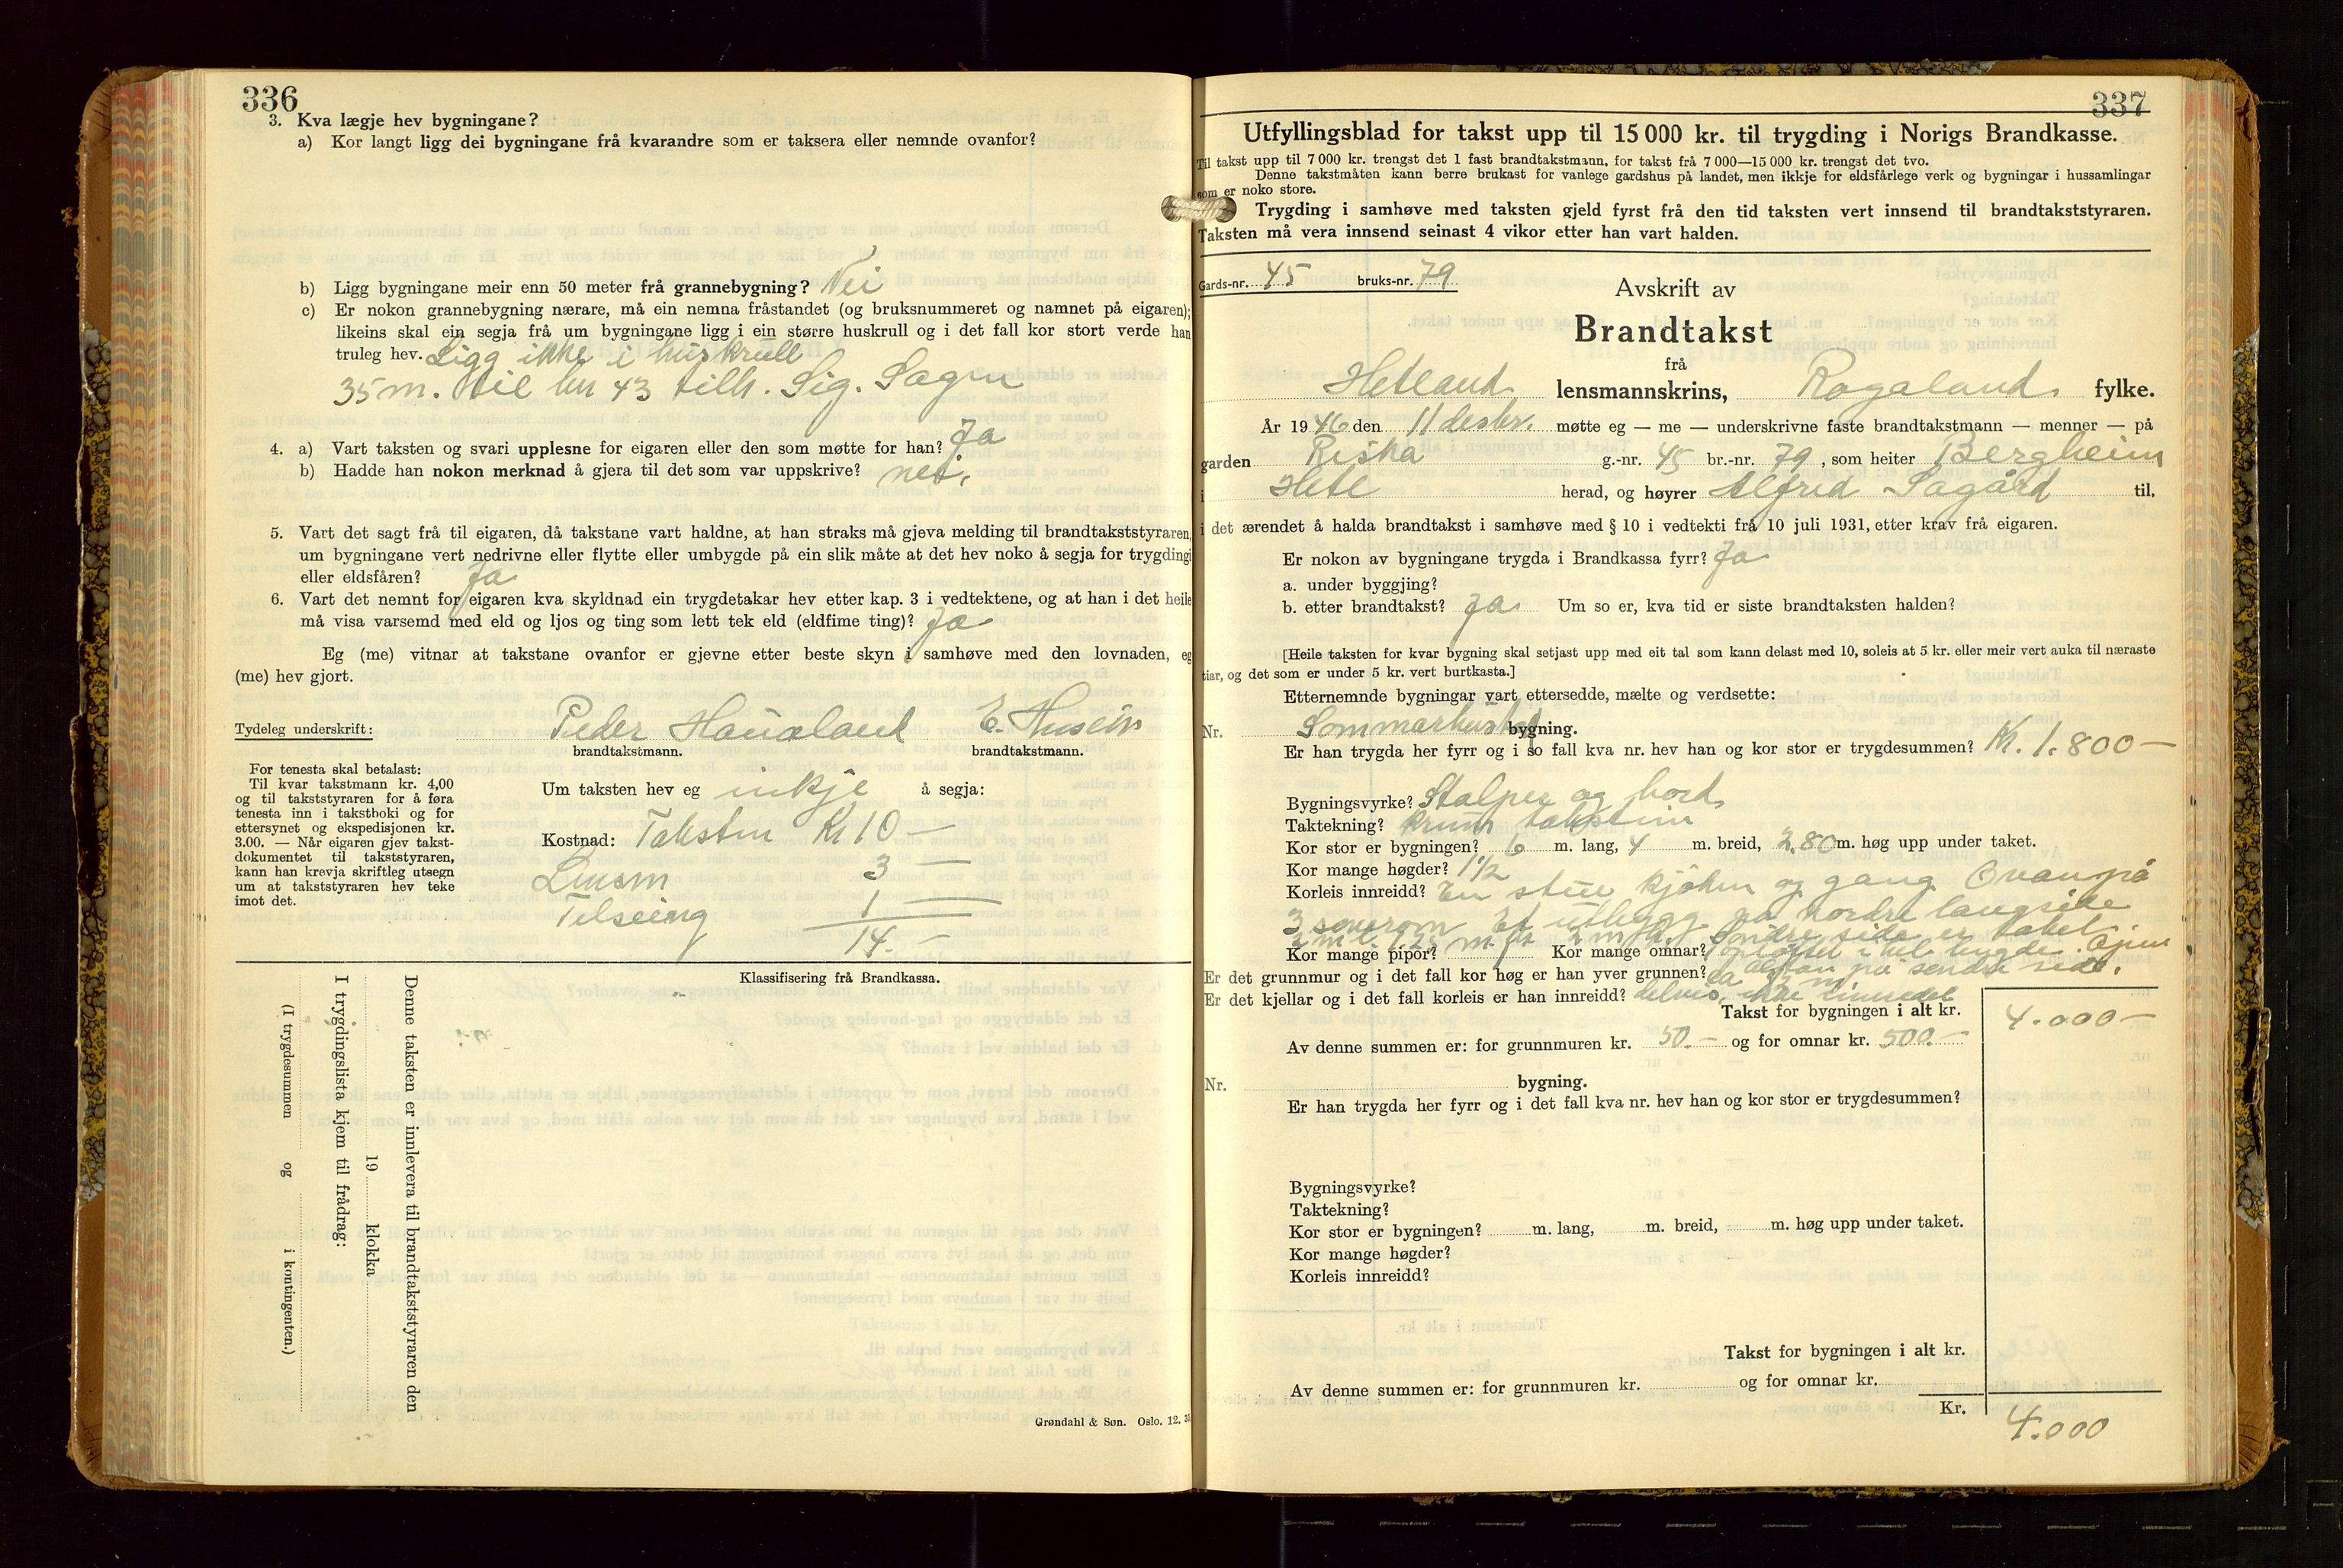 336
3. Kva lægje hev bygningane?
a) Kor langt ligg dei bygningane frå kvarandre som er taksera eller nemnde ovanfor?
b) Ligg bygningane meir enn 50 meter frå grannebygning? Nei
c) Er nokon grannebygning nærare, må ein nemna fråstandet (og bruksnummeret og namnet på eigaren);
likeins skal ein segja frå um bygningane ligg i ein større huskrull og i det fall kor stort verde han
truleg hev. Ligg ikke i huskrull
35 m. til br 43 tilh. Sig. Sagen
4. a) Vart taksten og svari upplesne for eigaren eller den som møtte for han? Ja
b) Hadde han nokon merknad å gjera til det som var uppskrive? nei.
5. Vart det sagt frå til eigaren, då takstane vart haldne, at han straks må gjeva melding til brandtakststyraren,
um bygningane vert nedrivne eller flytte eller umbygde på ein slik måte at det hev noko å segja for trygdingi
eller eldsfåren? Ja
6. Vart det nemnt for eigaren kva skyldnad ein trygdetakar hev etter kap. 3 i vedtektene, og at han i det heile
må visa varsemd med eld og ljos og ting som lett tek eld (eldfime ting)? Ja
Eg (me) vitnar at takstane ovanfor er gjevne etter beste skyn i samhøve med den lovnaden, eg
(me) hev gjort.
Tydeleg underskrift: Peder Haualand E. Husein
brandtakstmann. brandtakstmann.
For tenesta skal betalast:
Til kvar takstmann kr. 4,00
og til takststyraren for å føra
tenesta inn i takstboki og for
ettersynet og ekspedisjonen kr.
3.00. — Når eigaren gjev takst-
dokumentet til takststyraren,
kann han krevja skriftleg utsegn
um at takststyraren hev teke
imot det.
Um taksten hev eg inkje å segja:
Kostnad: Taksten Kr 10 —
Lensm 3 —
1 —
14. —
Klassifisering frå Brandkassa.
Denne taksten er innlevera til brandtakststyraren den
19 klokka
I trygdingslista kjem til frådrag:
(I trygdesummen og i kontingenten.)
Grøndahl & Søn. Oslo. 12.
337
Utfyllingsblad for takst upp til 15 000 kr. til trygding i Norigs Brandkasse.
Til takst upp til 7 000 kr. trengst det 1 fast brandtakstmann, for takst frå 7 000—15 000 kr. trengst det tvo.
Denne takstmåten kann berre brukast for vanlege gardshus på landet, men ikkje for eldsfårlege verk og bygningar i hussamlingar
som er noko store.
Trygding i samhøve med taksten gjeld fyrst frå den tid taksten vert innsend til brandtakststyraren.
Taksten må vera innsend seinast 4 vikor etter han vart halden.
Gards-nr. 45 bruks-nr. 79
Avskrift av
Brandtakst
frå
Hetland lensmannskrins, Rogaland fylke.
År 1946 den 11 desbr. møtte eg — me — underskrivne faste brandtakstmann — menner — på
garden Riska g.-nr. 45 br.-nr. 79, som heiter Bergheim
i Hetl herad, og høyrer Alfred Sagård til,
i det ærendet å halda brandtakst i samhøve med § 10 i vedtekti frå 10 juli 1931, etter krav frå eigaren.
Er nokon av bygningane trygda i Brandkassa fyrr? Ja
a. under byggjing?
b. etter brandtakst? Ja Um so er, kva tid er siste brandtaksten halden?
[Heile taksten for kvar bygning skal setjast upp med eit tal som kann delast med 10, soleis at 5 kr. eller meir vert auka til næraste
tiar, og det som er under 5 kr. vert burtkasta.]
Etternemnde bygningar vart ettersedde, mælte og verdsette:
Nr. Sommarhuset bygning.
Er han trygda her fyrr og i so fall kva nr. hev han og kor stor er trygdesummen? Kr. 1.800 —
Bygningsvyrke? Stolper og bord
Taktekning? krum takstein
Kor stor er bygningen? 6 m. lang, 4 m. breid, 2.80 m. høg upp under taket.
Kor mange høgder? 1 1/2
Korleis innreidd? En stue kjøken og gang Ovanpå
3 soverom Et utbygg på nordre langside
Søndre side er taket
Kor mange pipor? 1 Kor mange omnar? 1
Er det grunnmur og i det fall kor høg er han yver grunnen? på søndre side.
Er det kjellar og i det fall korleis er han innreidd? delvis, ikke innredet
Takst for bygningen i alt kr. 4.000 —
Av denne summen er: for grunnmuren kr. 50. — og for omnar kr. 500. —
Nr. bygning.
Er han trygda her fyrr og i det fall kva nr. hev han og kor stor er trygdesummen?
Bygningsvyrke?
Taktekning?
Kor stor er bygningen? m. lang, m. breid, m. høg upp under taket.
Kor mange høgder?
Korleis innreidd?
Takst for bygningen i alt kr.
Av denne summen er: for grunnmuren kr. og for omnar kr.
Kr. 4.000